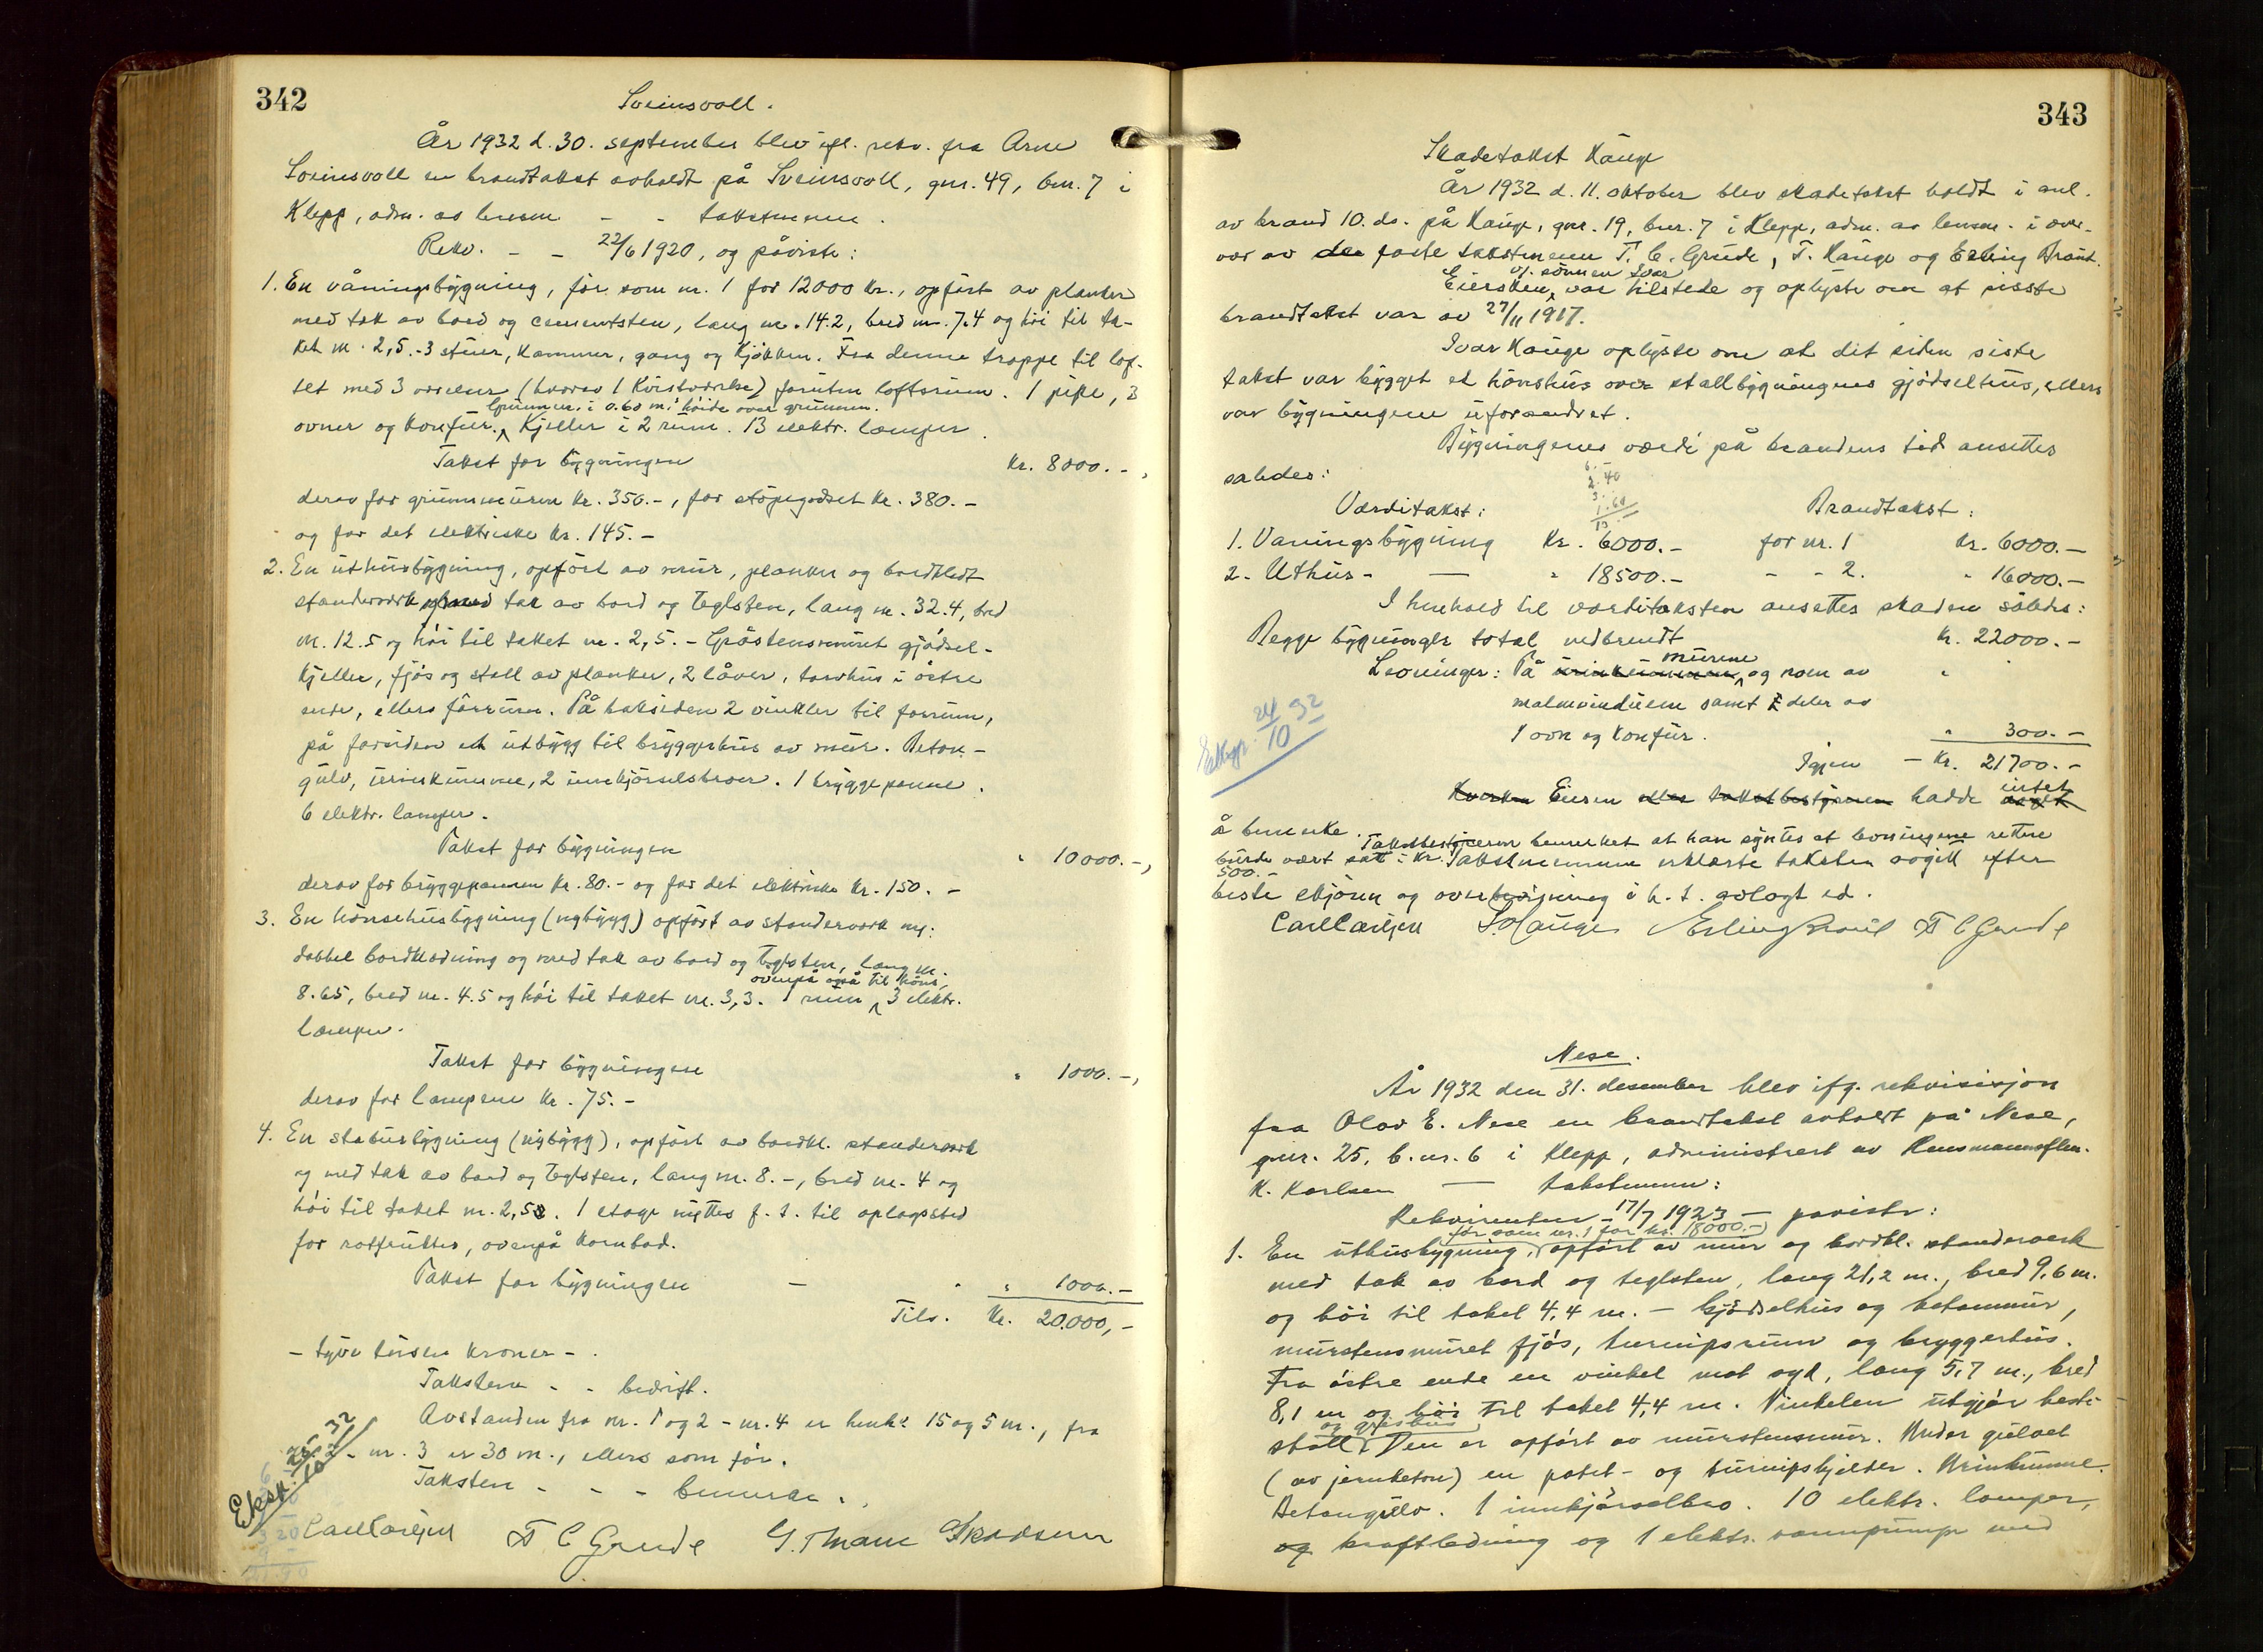 342
Sveinsvoll.
År 1932 d. 30. september blev ifl. rekv. fra Arne
Sveinsvoll en brandtakst avholdt på Sveinsvoll, gnr. 49, bnr. 7 i
Klepp, adm. av lensm - - takstmenn.
Rekv. - - 22/6 1920, og påviste:
1. En våningsbygning, før som nr. 1 for 12000 kr., opført av planker
med tak av bord og cementsten, lang m. 14.2, bred m. 7.4 og høi til ta-
ket m. 2,5. - 3 stuer, kammer, gang og kjøkken. Fra denne trappe til lof-
tet med 3 værelser (hvorav 1 kvistværelse) foruten loftsrum. 1 pipe, 3
Grunnm. i 0.60 m. høide over grunnen.
ovner og komfur. Kjeller i 2 rum. 13 elektr. lamper.
Takst for bygningen Kr. 8000.-,
derav for grunnmuren kr. 350.-, for støpegodset kr. 380.-
og for det elektriske kr. 145.-
2. En uthusbygning, opført av mur, planker og bordkledt
standerværk med tak av bord og teglsten, lang m. 32.4, bred
m. 12.5 og høi til taket m. 2,5. - Gråstensmuret gjødsel-
kjeller, fjøs og stall av planker, 2 låver, torvhus i østre
ende, ellers fôrrum. På baksiden 2 vinkler til forrum,
på forsiden et utbygg til bryggerhus av mur. Beton-
gulv, urinkumme, 2 innkjørselsbroer. 1 bryggepanne.
6 elektr. lamper.
Takst for bygningen " 10000.-,
derav for bryggepannen kr. 80.- og for det elektriske kr. 150.-
3. En hønsehusbygning (nybygg) opført av standerværk m.
dobbel bordklædning og med tak av bord og teglsten, lang m.
ovenpå også til høns,
8.65, bred m. 4.5 og høi til taket m. 3,3. 1 rum 3 elektr.
lamper.
Takst for bygningen " 1000.-,
derav for lampene kr. 75.-
4. En stabursbygning (nybygg), opført av bordkl. standerværk
og med tak av bord og teglsten, lang m. 8.-, bred m. 4 og
høi til taket m. 2,5. 1 etage nyttes f. t. til oplagssted
for rotfrukter, ovenpå kornbod.
Takst for bygningen - " " 1000.-
Tils. Kr. 20.000,-
- tyve tusen kroner -.
Taksten - - bedrift.
Avstanden fra nr. 1 og 2 - nr. 4 er henh. 15 og 5 m., fra
2 - nr. 3 er 30 m., ellers som før.
Taksten - - - bemerke.
Eksp. 25/10 32
Carl Carlsen T C Grude G. Thane
343
Skadetakst Hauge
År 1932 d. 11. oktober blev skadetakst holdt i anl.
av brand 10. ds. på Hauge, gnr. 19, bnr. 7 i Klepp, adm. av lensm. i over-
vær av de faste takstmenn T. C. Grude, T. Hauge og Erling Braut.
v/ sønnen Ivar
Eiersken, var tilstede og oplyste om at sisste
brandtakst var av 27/11 1917.
Ivar Hauge oplyste om at det siden siste
takst var bygget et hønshus over stallbygningens gjødselhus, ellers
var bygningene uforandret.
Bygningenes værdi på brandens tid ansettes
således:
Værditakst: Brandtakst:
1. Våningsbygning Kr. 6000.- for nr. 1 kr. 6000.-
2. Uthus- — " 18500.- - - 2. " 16000.-
I henhold til værditaksten ansettes skaden således:
Begge bygninger total nedbrendt Kr. 22000.-
murene
Levninger: På urinkummene og noen av "
malmvinduene samt deler av
1 ovn og komfur. " 300.-
Igjen - Kr. 21700.-
Eksp. 24/10 32
intet
Hverken Eieren eller takstbestyreren hadde noget
å bemerke.
Takstbestyreren bemerket at han syntes at levningene rettere
burde vært satt i kr. Takstmennene erklærte taksten avgitt efter
500.-
beste skjønn og overbevisning i h. t. avlagt ed.
Carl Carlsen T. Hauge Erling Braut T C Grude
Nese.
År 1932 den 31. desember blev ifg. rekvisisjon
fra Olav E. Nese en brandtakst avholdt på Nese,
gnr. 25, b.nr. 6 i Klepp, administrert av lensmannsflm.
K. Karlsen — takstmenn:
Rekvirenten - 17/7 1923 - påviste:
før som nr. 1 for kr. 18000.-
1. En uthusbygning, opført av mur og bordkl. standerverk
med tak av bord og teglsten, lang 21,2 m., bred 9,6 m.
og høi til taket 4,4 m. - Gjødselhus og betonmur,
murstensmuret fjøs, turnipsrum og bryggerhus.
Fra østre ende en vinkel mot syd, lang 5,7 m., bred
8,1 m og høi til taket 4,4 m. Vinkelen utgjør heste-
og grisehus
stall. Den er opført av murstensmur. Under gulvet
(av jernbeton) en potet- og turnipskjelder. Urinkumme.
Betongulv. 1 innkjørselbro. 10 elektr. lamper,
og kraftledning og 1 elektr. vannpumpe med